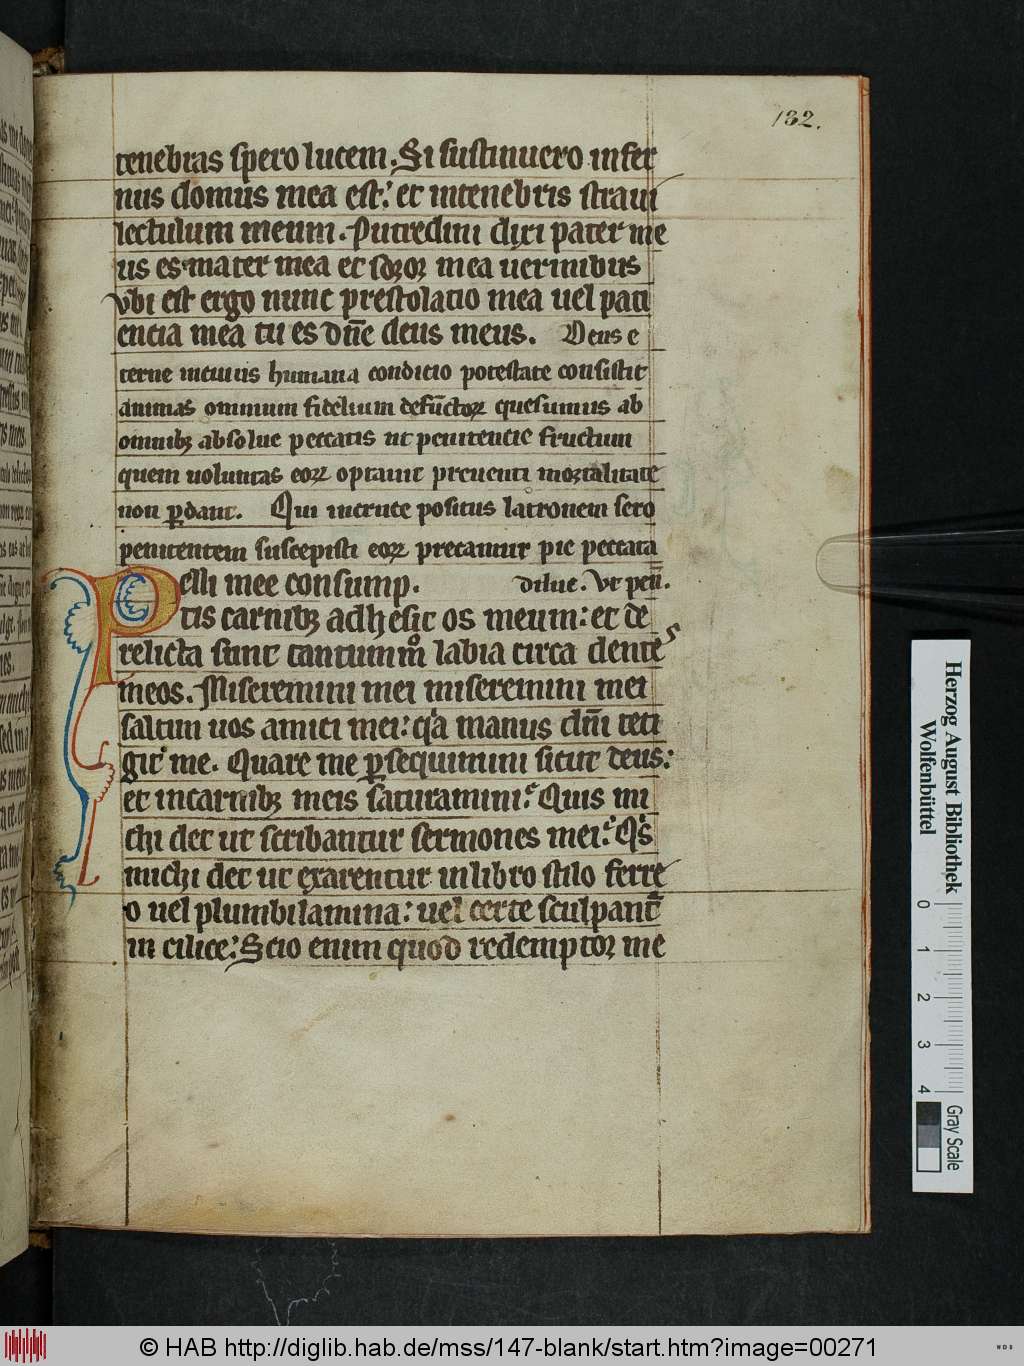 132.
tenebras spero lucem. Si sustinuero infer
nus domus mea est: et intenebris straui
lectulum meum. Putredini dixi pater me
us es mater mea et soror mea uermibus
vbi est ergo nunc prestolatio mea uel pati
encia mea tu es dn̄e deus meus. Deus e
terne incuius humana condicio potestate consistit
animas omnium fidelium defūctoꝝ quesumus ab
omnibꝫ absolue peccatis ut penitencie fructum
quem uoluntas eoꝝ optauit preuenti mortalitate
non ꝑdant. Qui incruce positus latronem sero
penitentem suscepisti eoꝝ precamur pie peccata
Pelli mee consump. dilue. Vt peñ.
tis carnibꝫ adhesit os meum: et de
relicta sunt tantummͦ labia circa dentes
meos. Miseremini mei miseremini mei
saltim uos amici mei: qͣa manus dn̄i teti
git me. Quare me ꝑsequimini sicut deus:
et incarnibꝫ meis saturamini: Quis mi
chi det ut scribantur sermones mei: Qͥs
michi det ut exarentur inlibro stilo ferre
o uel plumbilamina: uel certe sculpant᷑
in cilice: Scio enim quod redemptor me
Herzog August Bibliothek
Wolfenbüttel
0 1 2 3 4
Gray Scale
© HAB http://diglib.hab.de/mss/147-blank/start.htm?image=00271